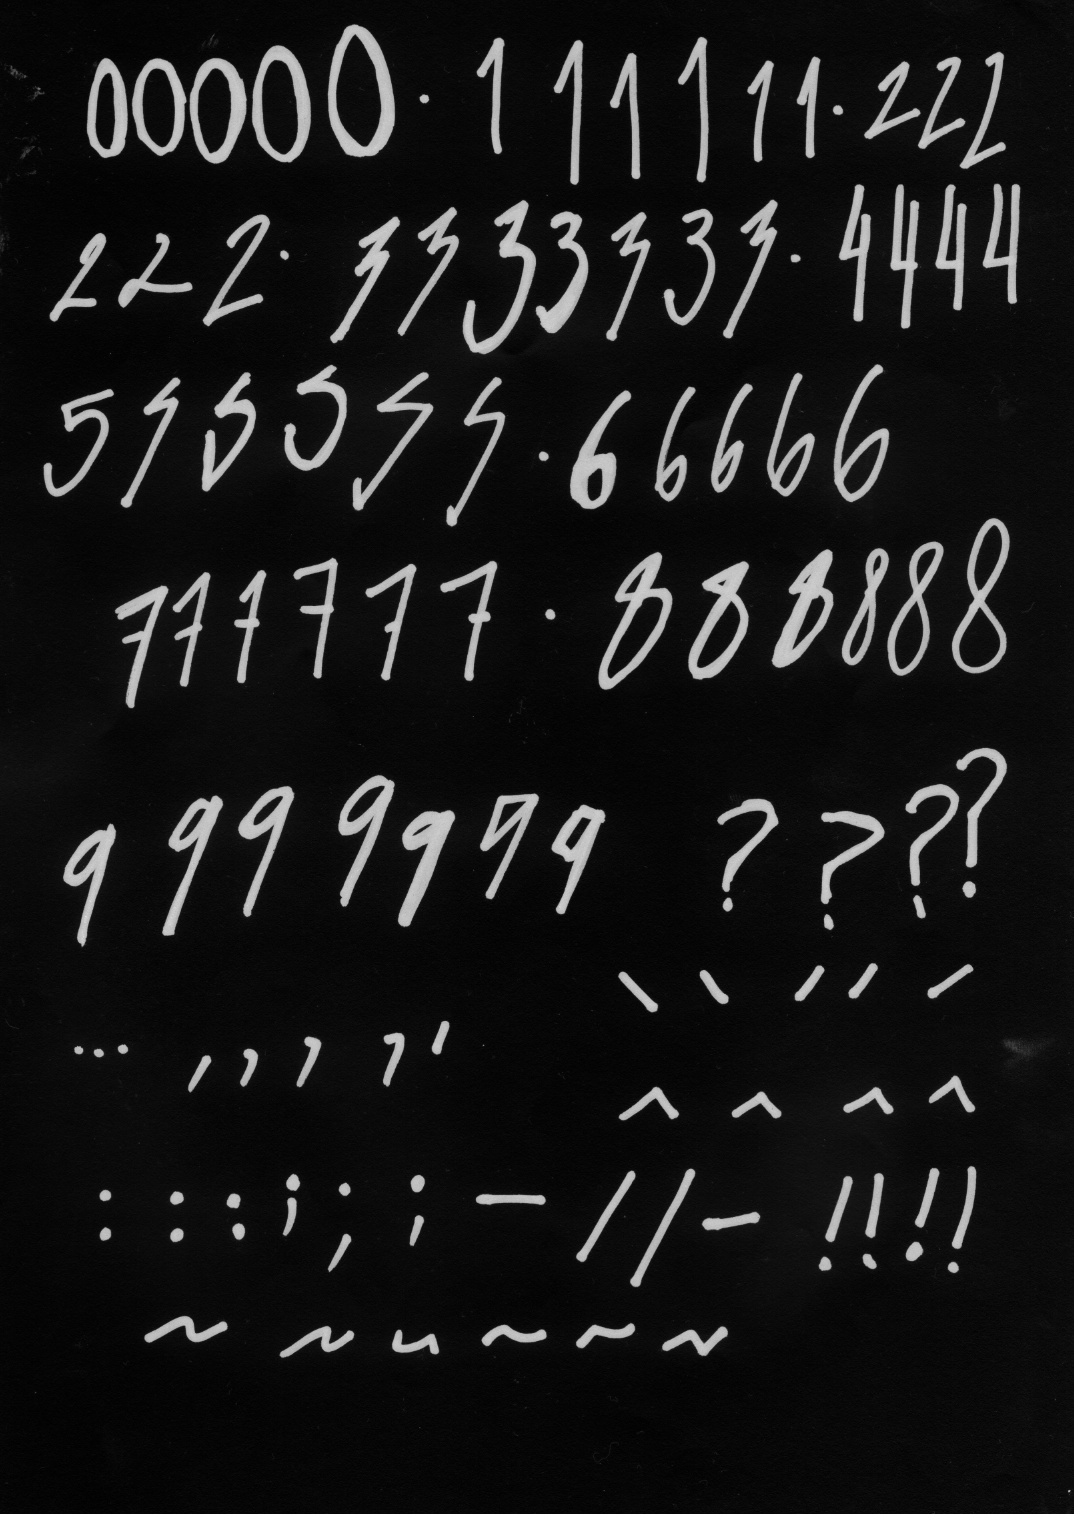 00000. 111111. 222
222. 3333333. 4444
555555. 66666
777777. 888888
9999999 ????
\ \ / / /
... , , , , '
^ ^ ^ ^
: : : ; ; ; - / / - !!!!
~ ~ ~ ~ ~ ~